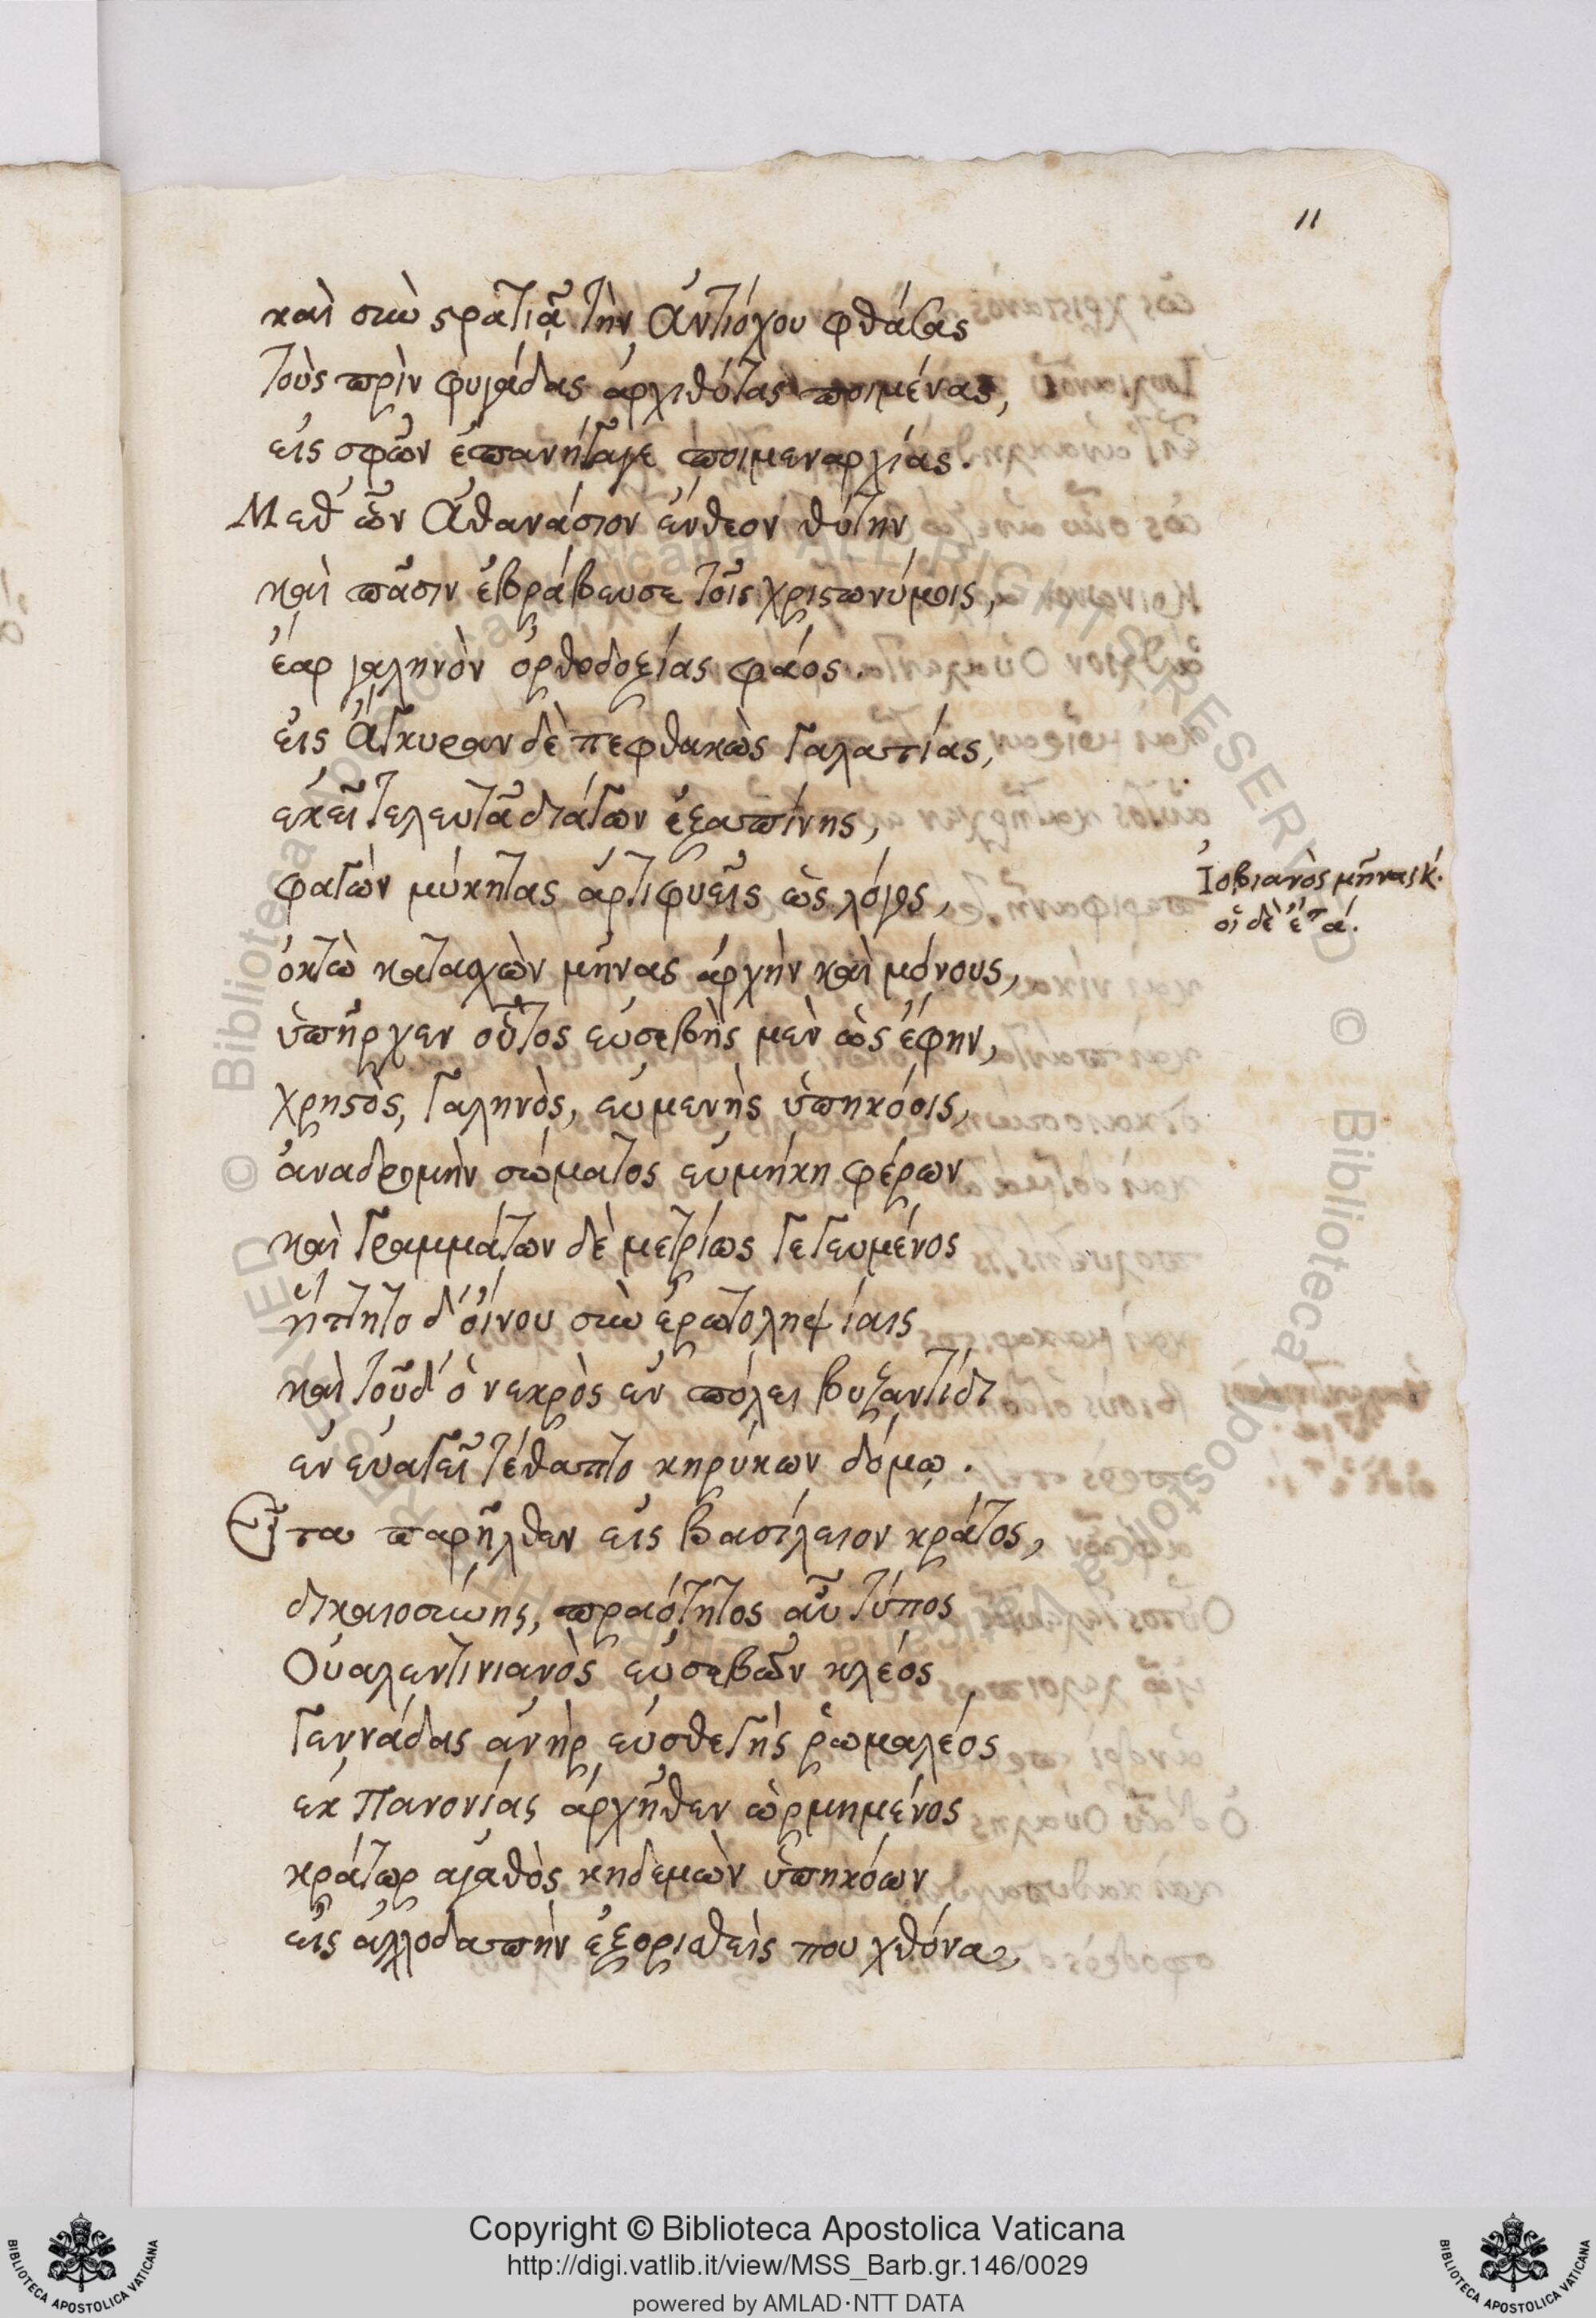 11
καὶ σὺν στρατιᾷ τὴν Ἀντιόχου φθάσας
τοὺς πρὶν φυγάδας ἀρχιθύτας ποιμένας,
εἰς σφῶν ἐπανήγαγε ποιμεναρχίας.
Μεθ' ὧν Ἀθανάσιον ἔνθεον θύτην
καὶ πᾶσιν ἐβράβευσε τοῖς χριστωνύμοις,
ἔαρ γαληνὸν ὀρθοδοξίας φάος.
εἰς Ἄγκυραν δὲ πεφθακὼς Γαλατίας,
ἐκεῖ τελευτᾷ διάγων ἐξαπίνης,
φαγὼν μύκητας ἀρτιφυεῖς ὡς λόγος,
Ἰοβιανὸς μῆνας κ.
οἱ δὲ ἑπτά.
ὀκτὼ κατασχὼν μῆνας ἀρχὴν καὶ μόνους,
ὑπῆρχεν οὗτος εὐσεβὴς μὲν ὡς ἔφην,
χρηστὸς, γαληνὸς, εὐμενὴς ὑπηκόοις,
ἀναδρομὴν σώματος εὐμήκη φέρων
καὶ γραμμάτων δὲ μετρίως γεγευμένος
ἥττητο δ' οἴνου σὺν ἐρωτοληψίαις
καὶ τοῦδ' ὁ νεκρὸς ἐν πόλει βυζαντίδι
ἐν εὐαγεῖ τέθαπτο κηρύκων δόμῳ.
Εἶτα παρῆλθεν εἰς βασίλειον κράτος,
δικαιοσύνης, πραότητος αὖ τύπος
Οὐαλεντινιανὸς εὐσεβῶν κλέος
γεννάδας ἀνὴρ εὐσθενὴς ῥωμαλέος
ἐκ Πανονίας ἀρχῆθεν ὡρμημένος
κράτωρ ἀγαθὸς κηδεμὼν ὑπηκόων
εἰς ἀλλοδαπὴν ἐξορισθεὶς που χθόνα,
Copyright © Biblioteca Apostolica Vaticana
http://digi.vatlib.it/view/MSS_Barb.gr.146/0029
powered by AMLAD·NTT DATA